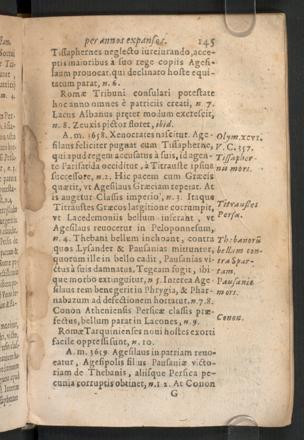 per annos expansos. 145
Tissaphernes neglecto iureiurando, acce-
ptis maioribus à suo rege copiis Agesi-
laum prouocat. qui declinato hoste equi-
tatum parat, n. 6.
Romæ Tribuni consulari potestate
hoc anno omnes è patriciis creati, n. 7.
Lacus Albanus præter modum excrescit,
n. 8. Zeuxis pictor floret, ibid.
A. m. 3658. Xenocrates nascitur. Age-
silaus feliciter pugnat cum Tissapherne,
qui apud regem accusatus à suis, idagen-
te Parisatida occiditur, à Titrauste ipsius
successore, n. 2. Hic pacem cum Græcis
quærit, vt Agesilaus Græciam repetat. At
is augetur Classis imperio, n. 3. Itaque
Titraustes Græcos largitione corrumpit,
vt Lacedemoniis bellum inferant, vt
Agesilaus reuocetur in Peloponnesum,
n. 4. Thebani bellum inchoant, contra
quos Lysander & Pausanias mittuntur,
quorum ille in bello cadit, Pausanias vi-
ctus à suis damnatus, Tegeam fugit, ibi-
que morbo extinguitur, n. 5. Interea Age-
silaus rem bene gerit in Phrygia, & Phar-
nabazum ad defectionem hortatur. n. 7. 8.
Conon Atheniensis Persicæ classis præ-
fectus, bellum parat in Lacones, n. 9.
Romæ Tarquinienses noui hostes exorti
facile oppressi sunt, n. 10.
A. m. 3659 Agesilaus in patriam reuo-
catur, Agesipolis filius Pausaniæ victo-
riam de Thebanis, aliisque Persica pe-
cunia corruptis obtinet, n. 1 2. At Conon
G
Olym. xcvi.
V. C. 357.
Tissapher-
nis mors.
Titraustes
Persa.
Thebanorũ
bellum con-
tra Spar-
tam.
Pausaniæ
mors.
Conon.